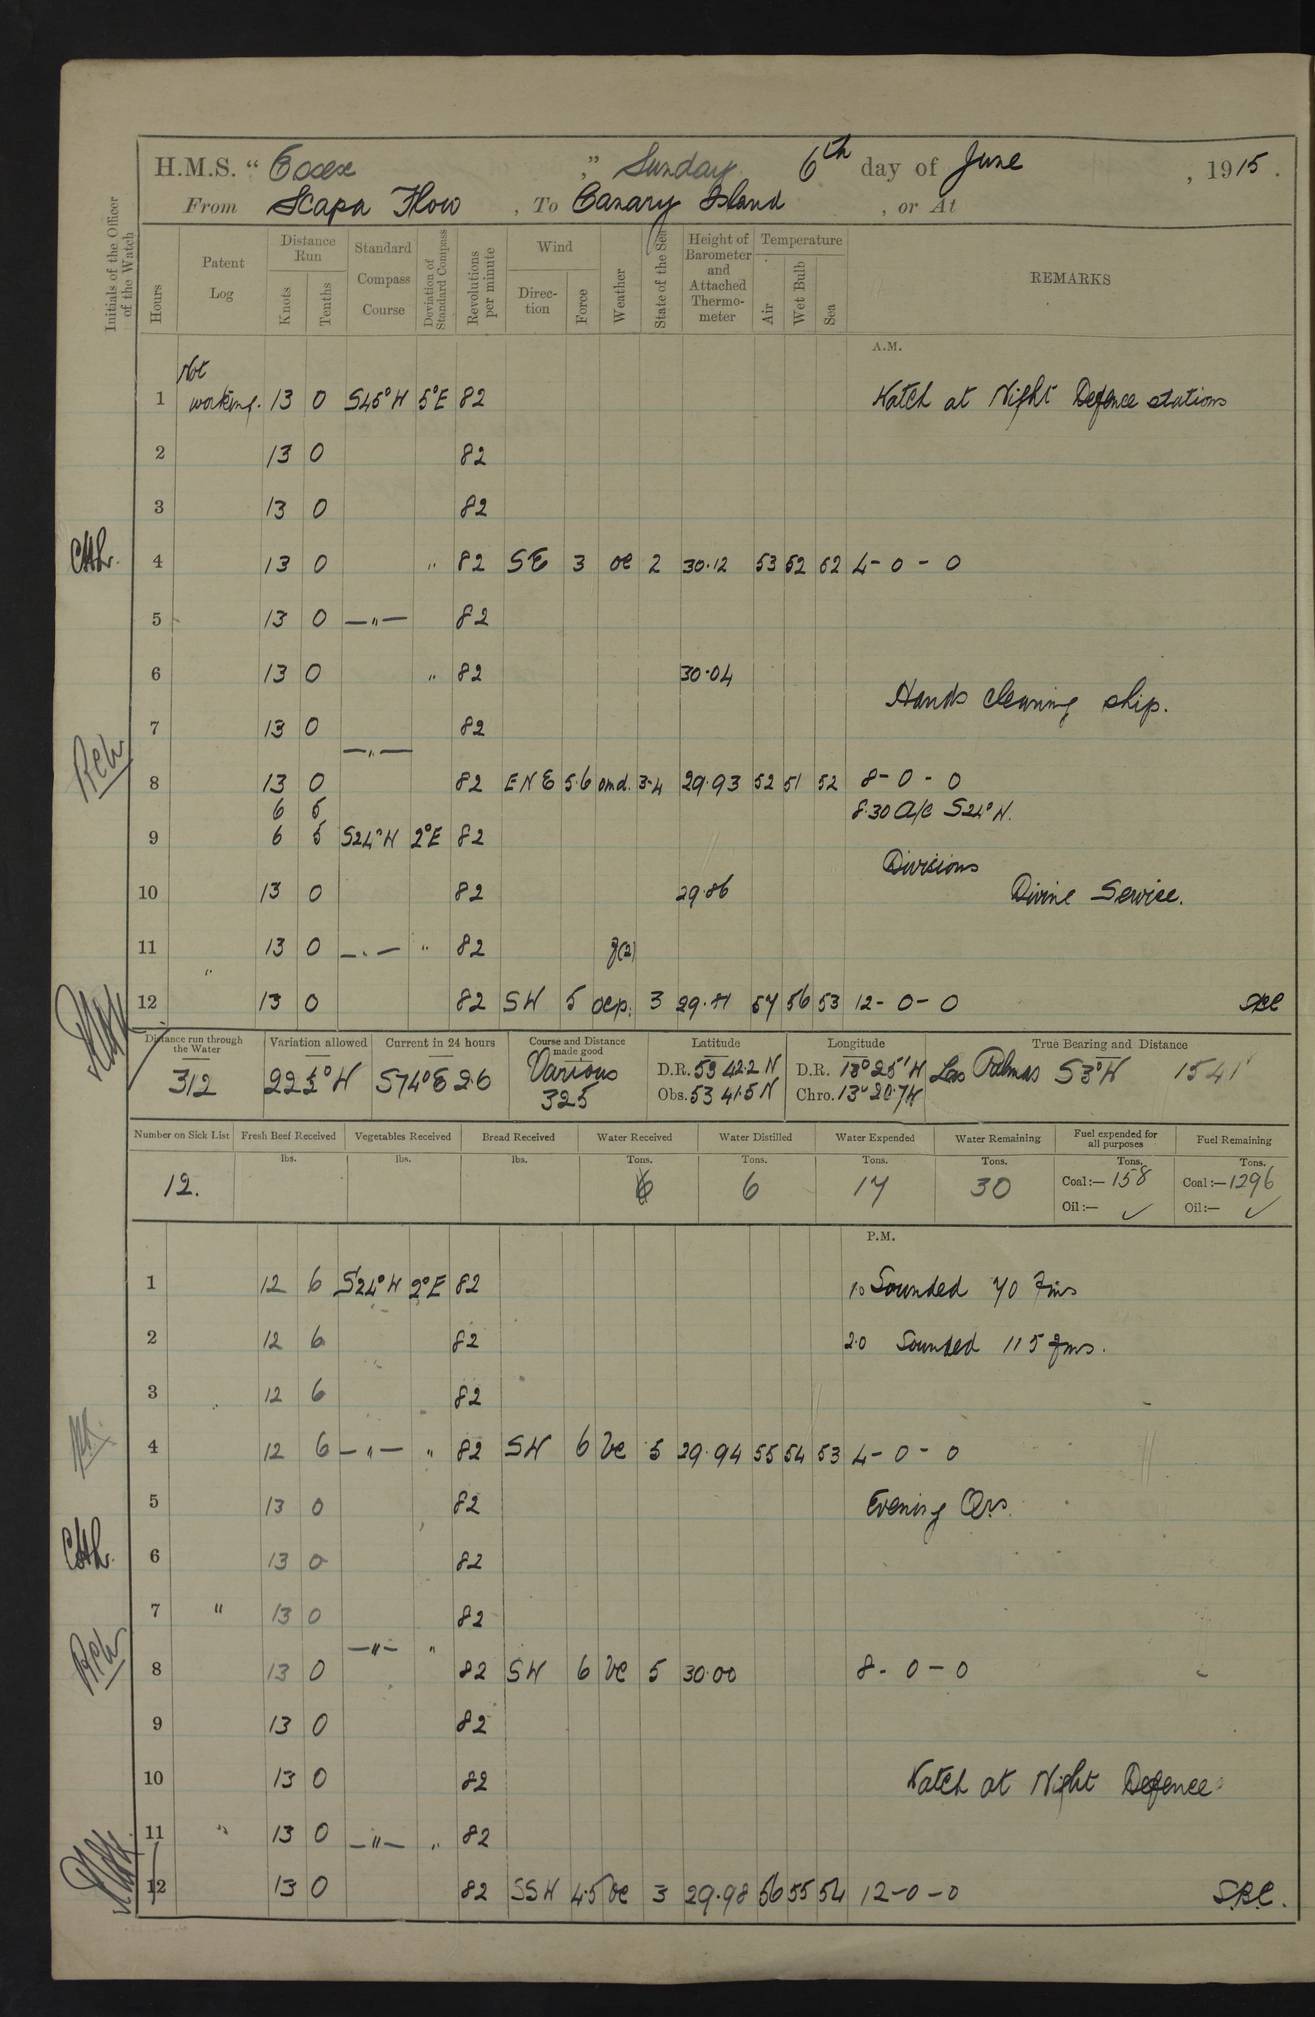 H.M.S. “ Essex ,” Sunday 6th day of June , 1915 .
From Scapa Flow , To Canary Island , or At
Initials of the Officer of the Watch
Hours
Patent Log
Distance Run
Knots
Tenths
Standard Compass Course
Deviation of Standard Compass
Revolutions per minute
Wind
Direction
Force
Weather
State of the Sea
Height of Barometer and Attached Thermometer
Temperature
Air
Wet Bulb
Sea
REMARKS
A.M.
Not
1 working. 13 0 S45°W 5°E 82 Watch at Night Defence stations
2 13 0 82
3 13 0 82
4 13 0 " 82 SE 3 oc 2 30.12 53 52 52 4 - 0 - 0
5 13 0 — " — 82
6 13 0 " 82 30.04
Hands cleaning ship.
7 13 0 82
— " —
8 13 0 82 ENE 5.6 omd. 3-4 29.93 52 51 52 8 - 0 - 0
6 5 8.30 A/C S24°W.
9 6 5 S24°W 2°E 82
Divisions
10 13 0 82 29.86 Divine Service.
11 13 0 — " — " 82 g(2)
12 " 13 0 82 SW 5 ocp. 3 29.81 57 56 53 12 - 0 - 0
Distance run through the Water
312
Variation allowed
22½°W
Current in 24 hours
S74°E 26
Course and Distance made good
Various
325
Latitude
D.R. 53 42.2 N
Obs. 53 41.5 N
Longitude
D.R. 13° 25' W
Chro. 13° 20.7 W
True Bearing and Distance
Las Palmas S3°W 1541'
Number on Sick List
12.
Fresh Beef Received
lbs.
Vegetables Received
lbs.
Bread Received
lbs.
Water Received
Tons.
Water Distilled
Tons.
6
Water Expended
Tons.
17
Water Remaining
Tons.
30
Fuel expended for all purposes
Tons.
Coal:— 158
Oil:— ✓
Fuel Remaining
Tons.
Coal:— 1296
Oil:— ✓
P.M.
1 12 6 S24°W 2°E 82 1.0 Sounded 70 Fms
2 12 6 82 2.0 Sounded 115 fms.
3 12 6 82
4 12 6 — " — " 82 SW 6 bc 5 29.94 55 54 53 4 - 0 - 0
5 13 0 82 Evening Qrs.
6 13 0 82
7 " 13 0 82
— " — "
8 13 0 82 SW 6 bc 5 30.00 8 - 0 - 0
9 13 0 82
10 13 0 82 Watch at Night Defence
11 " 13 0 — " — " 82
12 13 0 82 SSW 4.5 bc 3 29.98 56 55 54 12 - 0 - 0 S.B.C.